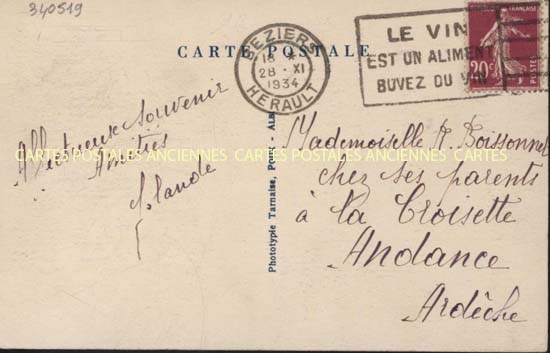 340519
CARTE POSTALE
BEZIERS
18 *
28 - XI
1934
HERAULT
LE VIN
EST UN ALIMENT
BUVEZ DU VIN
FRANÇAISE
20c
POSTES
Affectueux Souvenir
Amitiés
CARTES POSTALES ANCIENNES CARTES POSTALES ANCIENNES CARTES
Phototypie Tarnaise, Poux - Alb
Mademoiselle R. Boissonnet
chez ses parents
à la Croisette
Andance
Ardèche